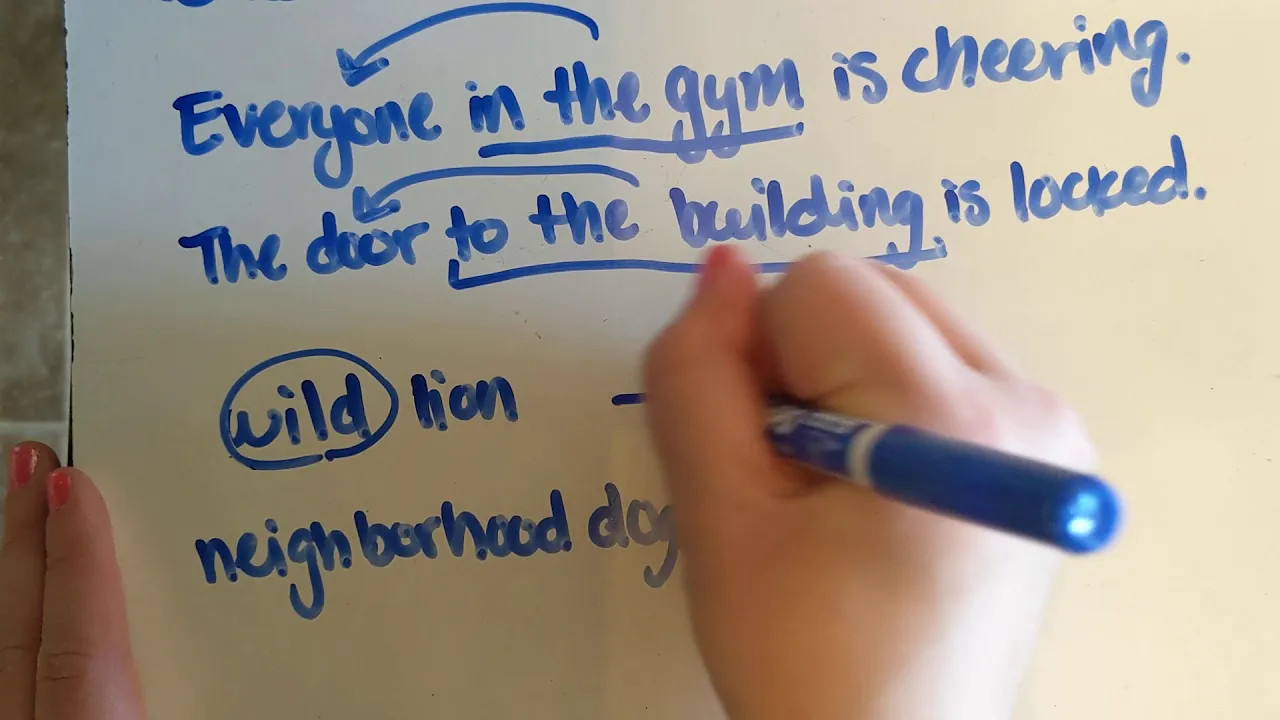 Everyone in the gym is cheering.
The door to the building is locked.
wild lion
neighborhood dog